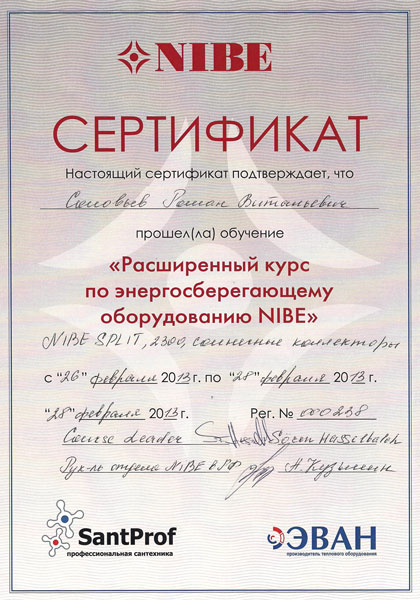 NIBE
СЕРТИФИКАТ
Настоящий сертификат подтверждает, что
Соловьев Роман Витальевич
прошел(ла) обучение
«Расширенный курс
по энергосберегающему
оборудованию NIBE»
NIBE SPLIT, 2300, солнечные коллекторы
с "26" февраля 2013 г. по "28" февраля 2013 г.
"28" февраля 2013 г. Рег. № 000238
Course Leader Sören Hasselbalch
Рук-ль отдела NIBE А. Кузьмин
SantProf
профессиональная сантехника
ЭВАН
производитель теплового оборудования